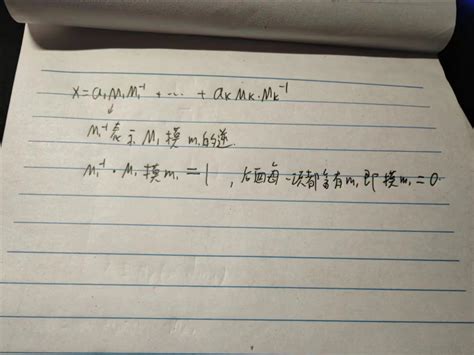 x = a₁M₁M₁⁻¹ + ... + aₖMₖ·Mₖ⁻¹
M₁⁻¹表示 M₁ 摸 m₁的逆
M₁⁻¹·M₁ 摸 m₁ = 1 , 后面每一项都含有m₁即 摸 m₁ = 0